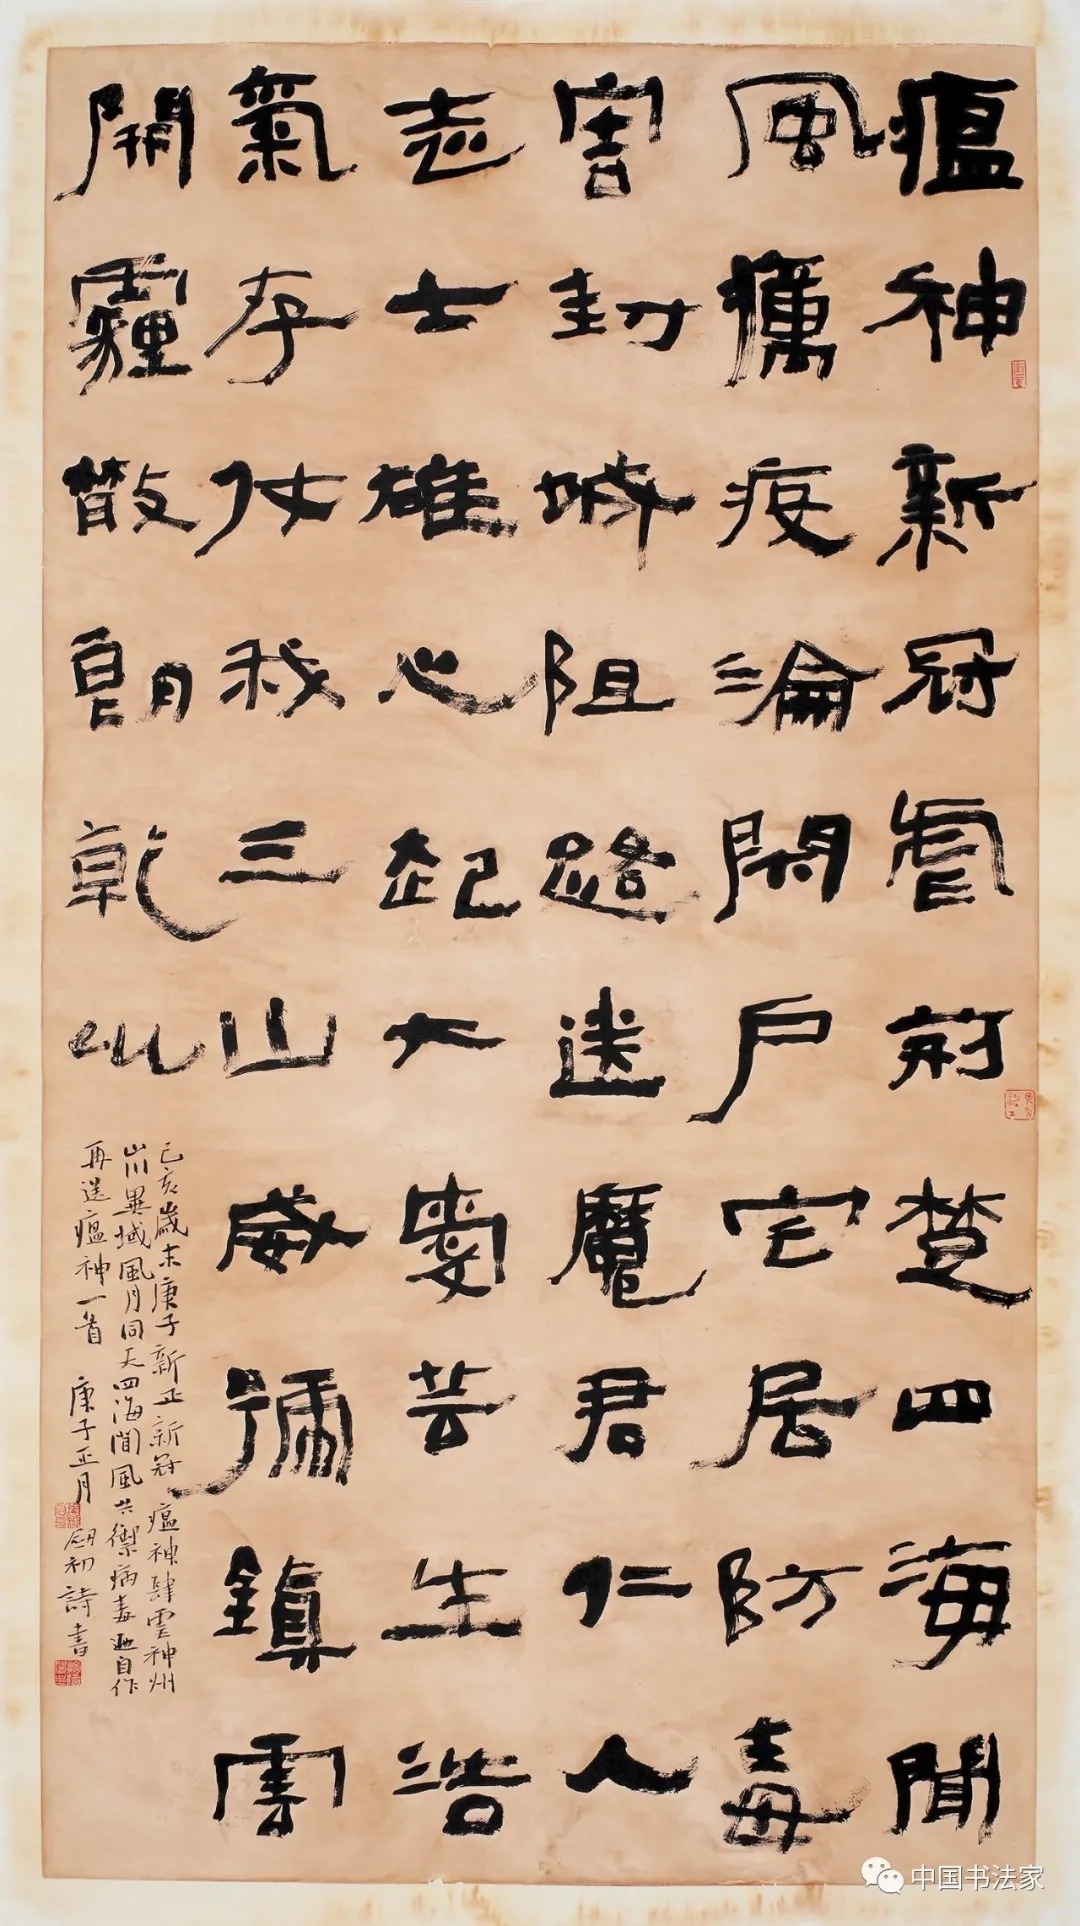 瘟神新冠虐荊楚四海聞
風癘疫淪閉戶宅居防毒
害封城阻路送魔君仁人
志士雄心起大愛芸生浩
氣存仗我三山威號鎮雲
開霾散朗乾坤
己亥歲末庚子新正新冠瘟神肆雲神州
山川異域風月同天四海聞風共禦病毒迺自作
再送瘟神一首 庚子正月 初詩書
中国书法家